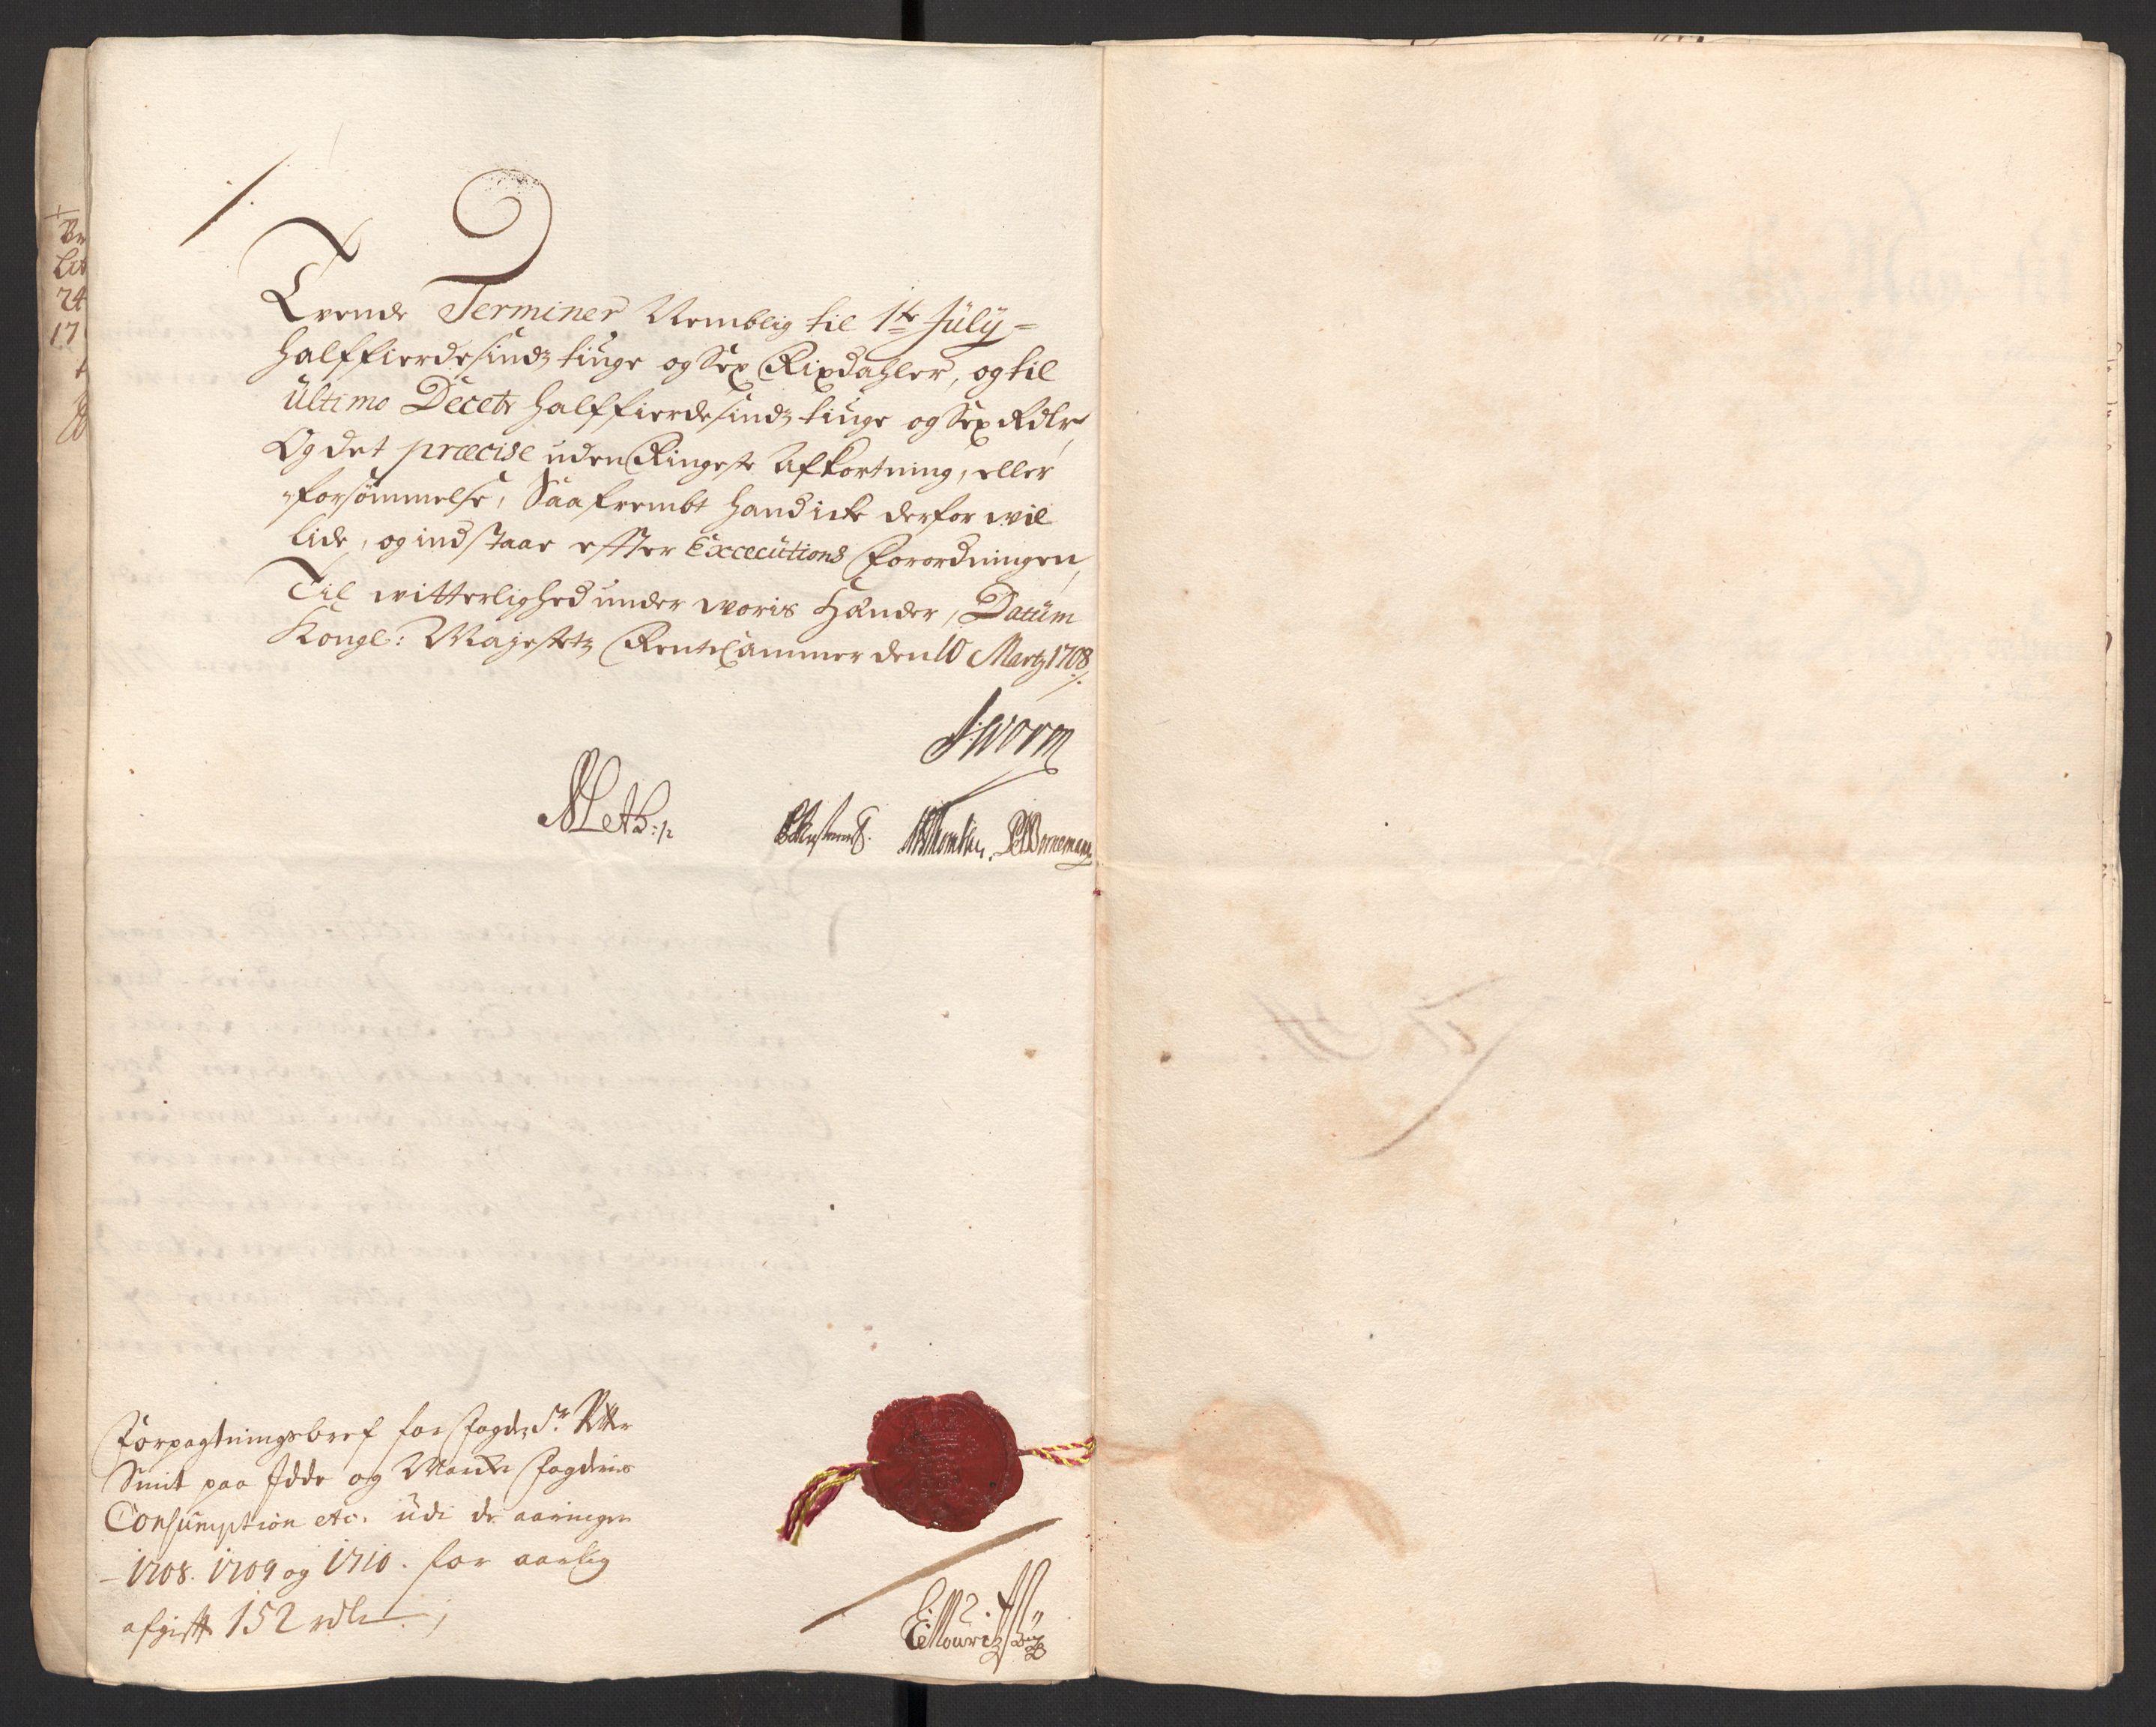 Tvende Terminer Nemblig til 1te Júlÿ =
halffierdesindz tiuge og Sex Rixdahler, og til
Ultimo Decebr halffierdesindz tiuge og Sex Rdlr,
Og det præcise uden Ringeste Afkortning, eller
forsømmelse, Saafrembt hand icke derfor wil
lide, og indstaar efter Excecútions Forordningen,
Til witterlighed under woris Hænder, Datúm
Kongl: Majestetz RenteCammer den 10 Martz 1708 ./.
Worm
Meth:p
Thomsen. Bornemann
Forpagtningsbref for fogden Sr.
Smit paa Idde og Marker fogderies
Consumption etc. udi de aaringer
1708. 1709 og 1710. for aarlig
afgift 152 rdlr
24
17